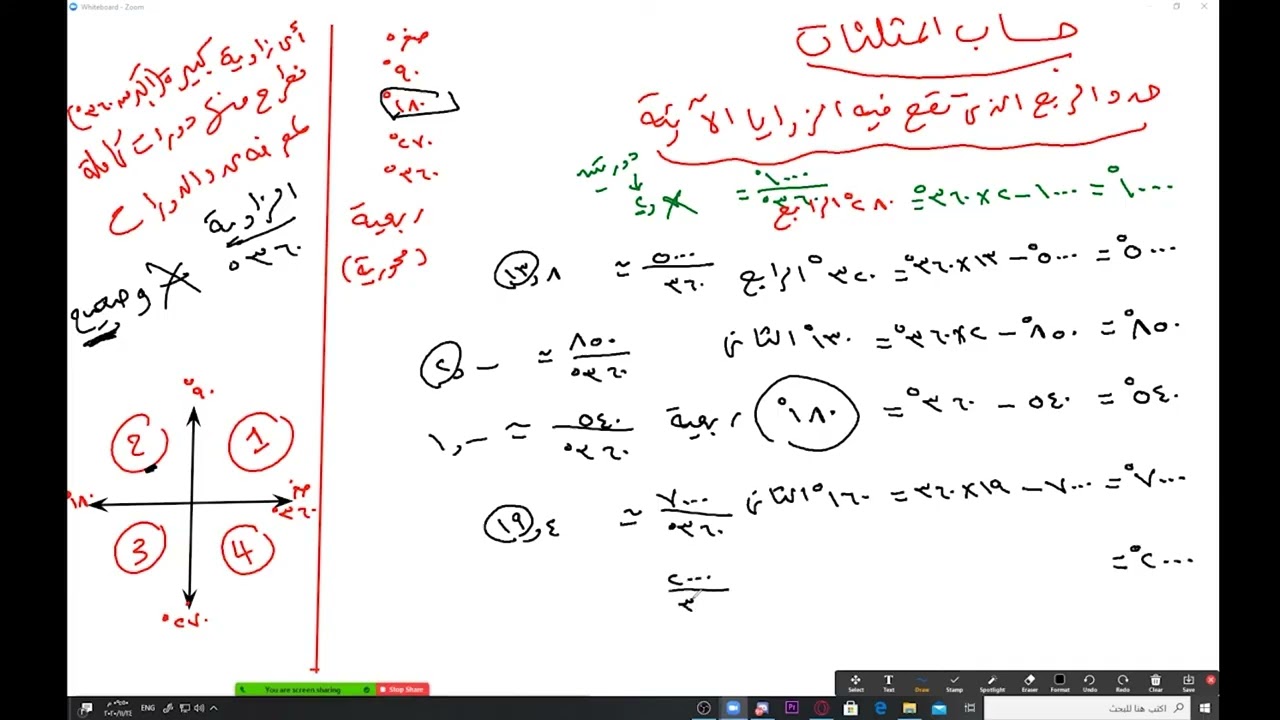 Whiteboard - Zoom
حساب المثلثات
حدد الربع الذى تقع فيه الزوايا الآتية
١٠٠٠° = ١٠٠٠ − ٢×٣٦٠ = ٢٨٠° الرابع
١٠٠٠° / ٣٦٠° =
٥٠٠٠° = ٥٠٠٠° − ١٣×٣٦٠° = ٣٢٠° الرابع
٥٠٠٠ / ٣٦٠ ≃ ١٣,٨
٨٥٠° = ٨٥٠° − ٢×٣٦٠° = ١٣٠° الثانى
٨٥٠ / ٣٦٠° ≃ ٢,
٥٤٠° = ٥٤٠ − ٣٦٠° = ١٨٠° ربعية
٥٤٠ / ٣٦٠° ≃ ١,
٧٠٠٠° = ٧٠٠٠ − ١٩×٣٦٠ = ١٦٠° الثانى
٧٠٠٠ / ٣٦٠° ≃ ١٩,٤
٢٠٠٠° =
٢٠٠٠ / ٣
صفر°
٩٠°
١٨٠°
٢٧٠°
٣٦٠°
ربعية
(محورية)
أى زاوية كبيرة (أكبر من ٣٦٠°)
نطرح منها دورات كاملة
الزاوية
٣٦٠°
٩٠°
2
1
١٨٠°
صفر
٣٦٠°
3
4
٢٧٠°
You are screen sharing
Stop Share
Select
Text
Draw
Stamp
Spotlight
Eraser
Format
Undo
Redo
Clear
Save
ENG
اكتب هنا للبحث